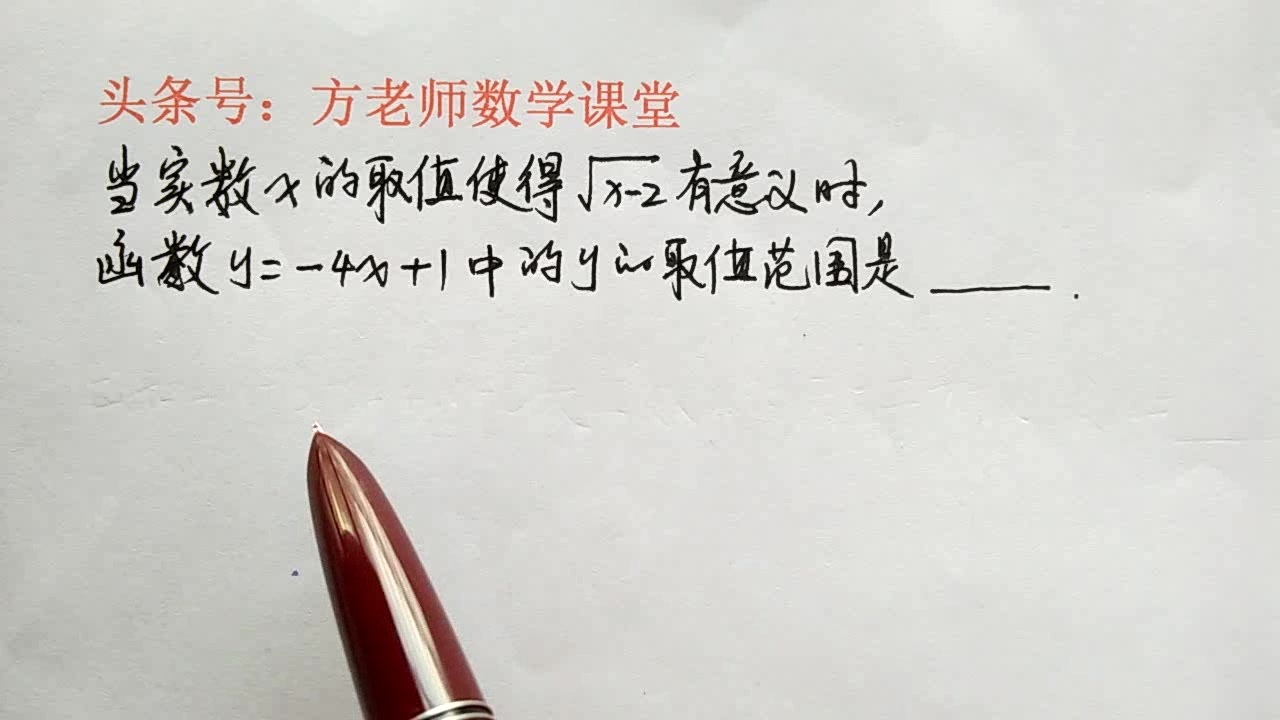 头条号：方老师数学课堂
当实数x的取值使得√x-2有意义时,
函数y=-4x+1中的y的取值范围是____.